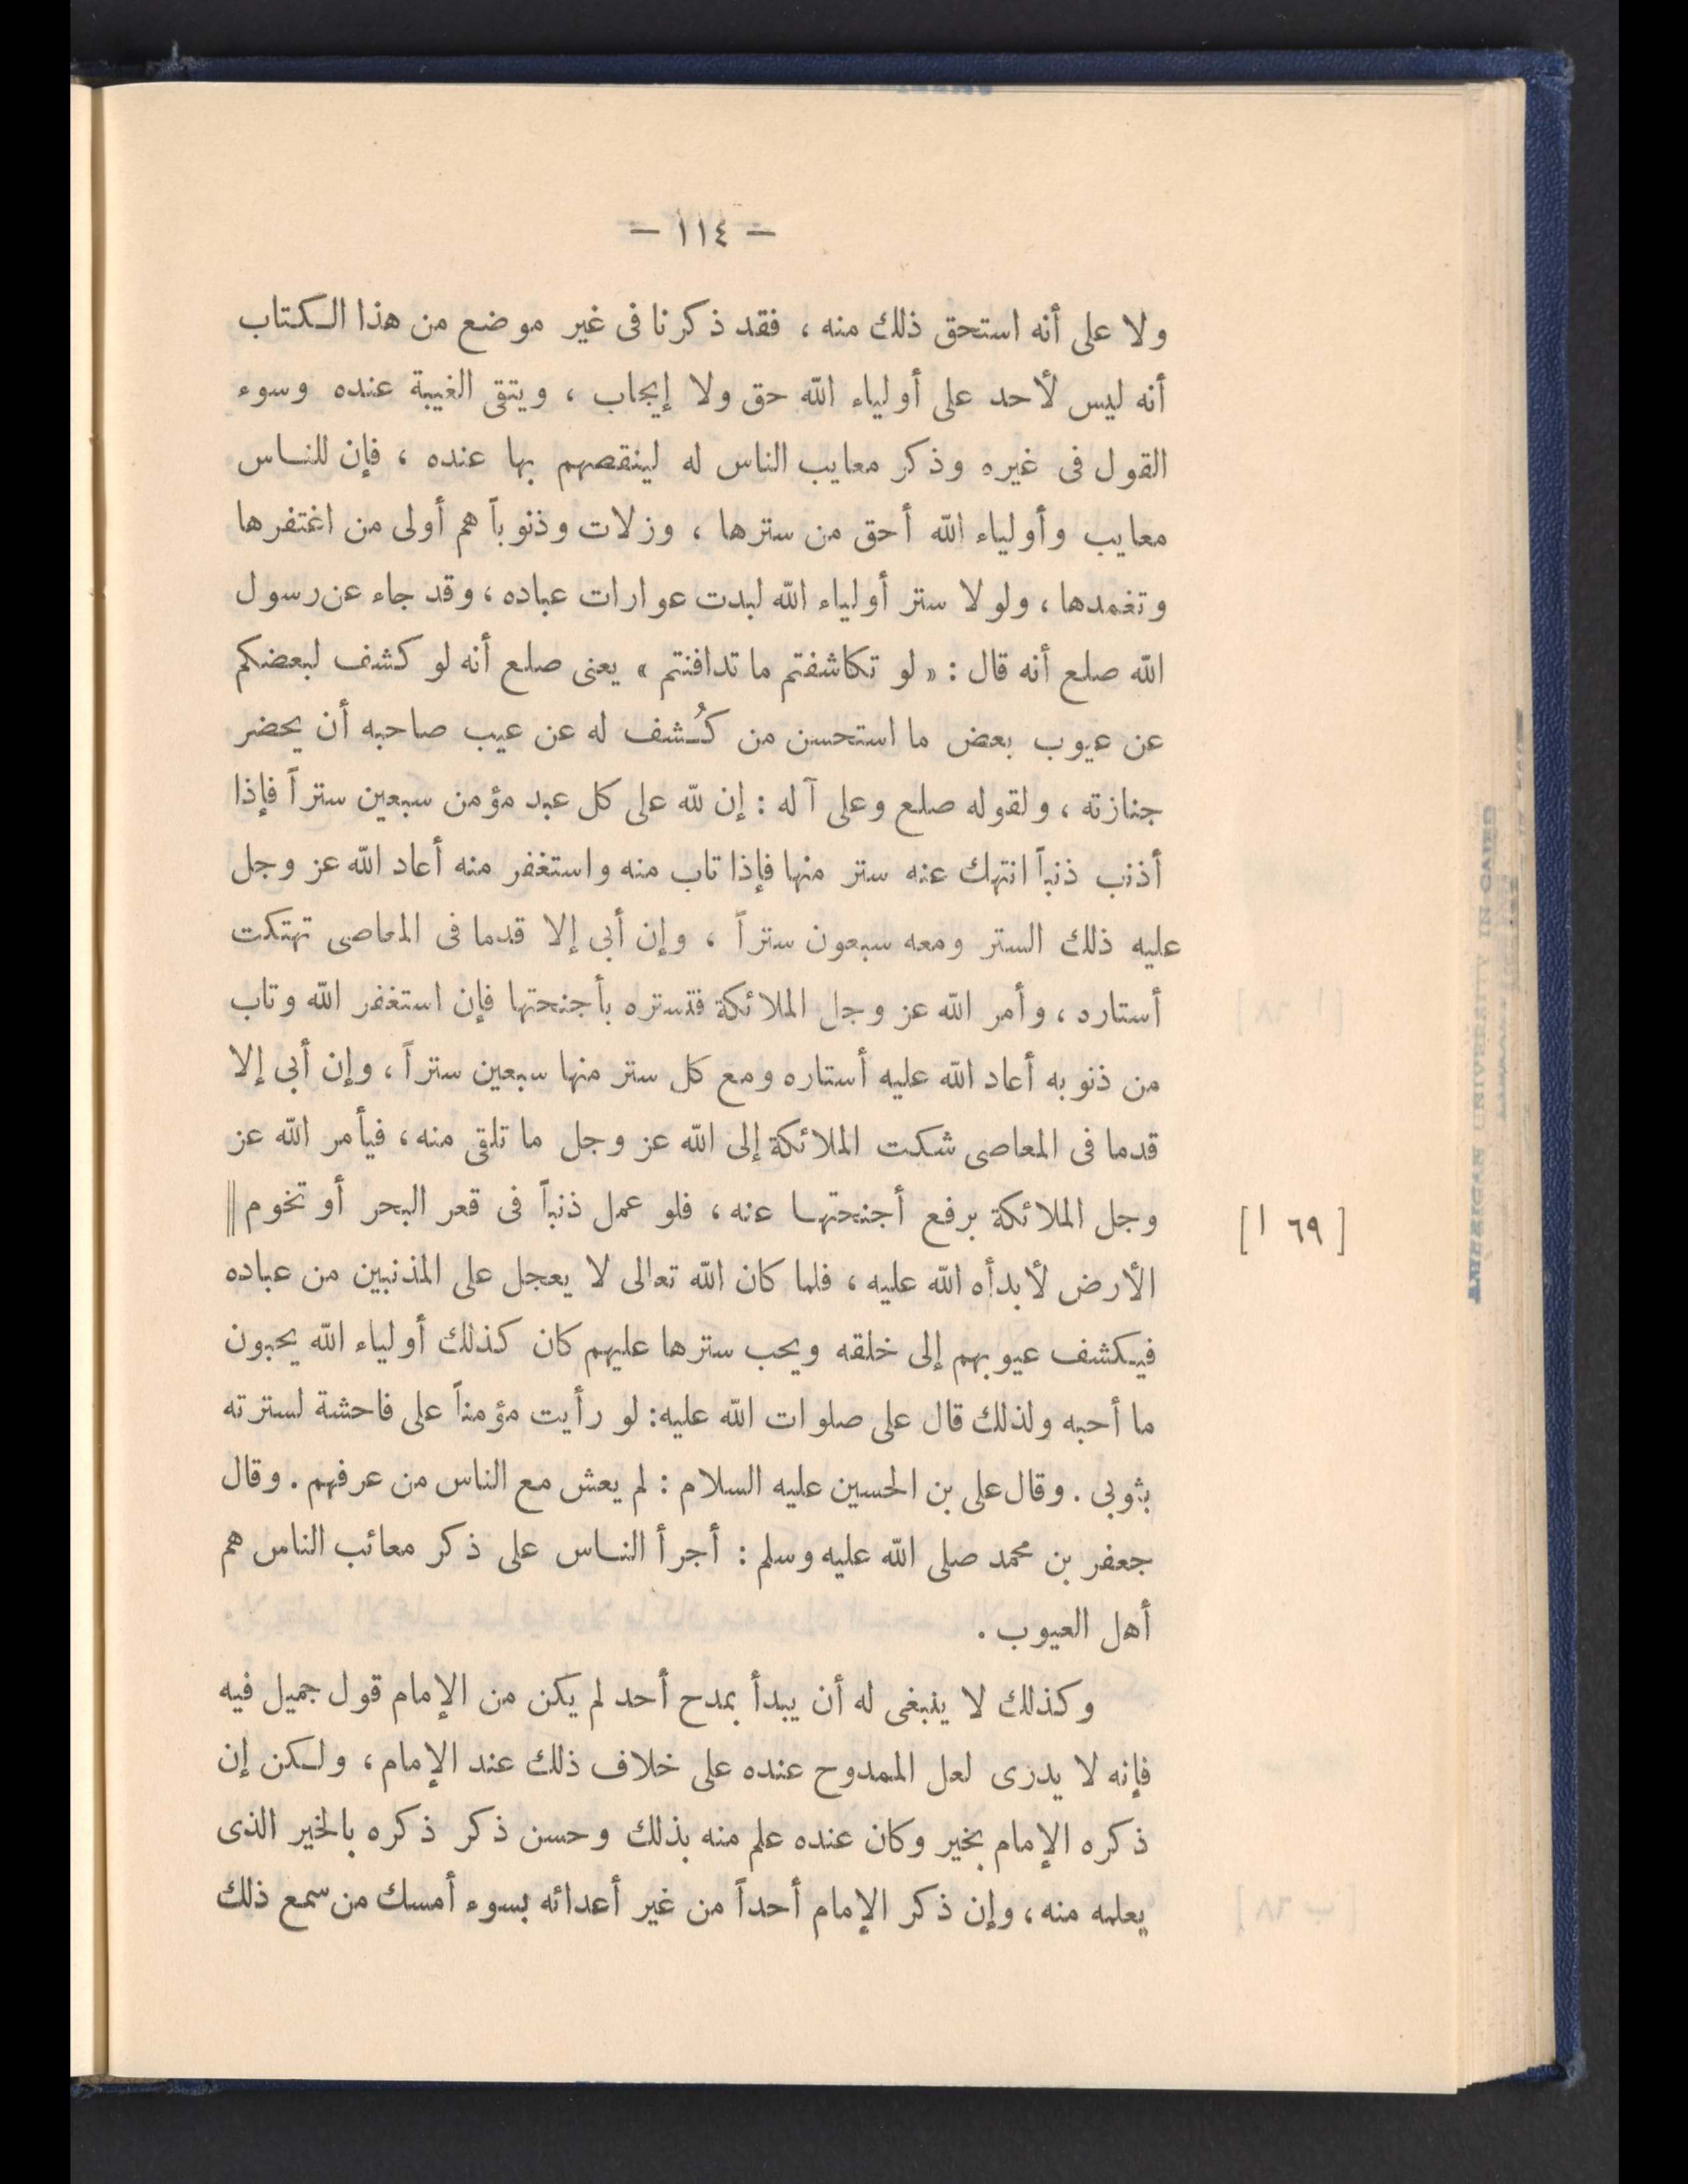 – ١١٤ –
ولا على أنه استحق ذلك منه ، فقد ذكرنا فى غير موضع من هذا الكتاب
أنه ليس لأحد على أولياء الله حق ولا إيجاب ، ويتقى الغيبة عنده وسوء
القول فى غيره وذكر معايب الناس له لينقصهم بها عنده ، فإن للناس
معايب وأولياء الله أحق من سترها ، وزلات وذنوباً هم أولى من اغتفرها
وتغمدها ، ولولا ستر أولياء الله لبدت عوارات عباده ، وقد جاء عن رسول
الله صلع أنه قال : « لو تكاشفتم ما تدافنتم » يعنى صلع أنه لو كشف لبعضكم
عن عيوب بعض ما استحسن من كُشف له عن عيب صاحبه أن يحضر
جنازته ، ولقوله صلع وعلى آله : إن لله على كل عبد مؤمن سبعين ستراً فإذا
أذنب ذنباً انتهك عنه ستر منها فإذا تاب منه واستغفر منه أعاد الله عز وجل
عليه ذلك الستر ومعه سبعون ستراً ، وإن أبى إلا قدما فى المعاصى تهتكت
أستاره ، وأمر الله عز وجل الملائكة فتستره بأجنحتها فإن استغفر الله وتاب
من ذنوبه أعاد الله عليه أستاره ومع كل ستر منها سبعين ستراً ، وإن أبى إلا
قدما فى المعاصى شكت الملائكة إلى الله عز وجل ما تلقى منه ، فيأمر الله عز
وجل الملائكة برفع أجنحتها عنه ، فلو عمل ذنباً فى قعر البحر أو تخوم ||
[ ٦٩ ا ]
الأرض لأبدأه الله عليه ، فلما كان الله تعالى لا يعجل على المذنبين من عباده
فيكشف عيوبهم إلى خلقه ويحب سترها عليهم كان كذلك أولياء الله يحبون
ما أحبه ولذلك قال على صلوات الله عليه : لو رأيت مؤمناً على فاحشة لسترته
بثوبى . وقال على بن الحسين عليه السلام : لم يعش مع الناس من عرفهم . وقال
جعفر بن محمد صلى الله عليه وسلم : أجرأ الناس على ذكر معائب الناس هم
أهل العيوب .
وكذلك لا ينبغى له أن يبدأ بمدح أحد لم يكن من الإمام قول جميل فيه
فإنه لا يدرى لعل الممدوح عنده على خلاف ذلك عند الإمام ، ولكن إن
ذكره الإمام بخير وكان عنده علم منه بذلك وحسن ذكر ذكره بالخير الذى
يعلمه منه ، وإن ذكر الإمام أحداً من غير أعدائه بسوء أمسك من سمع ذلك